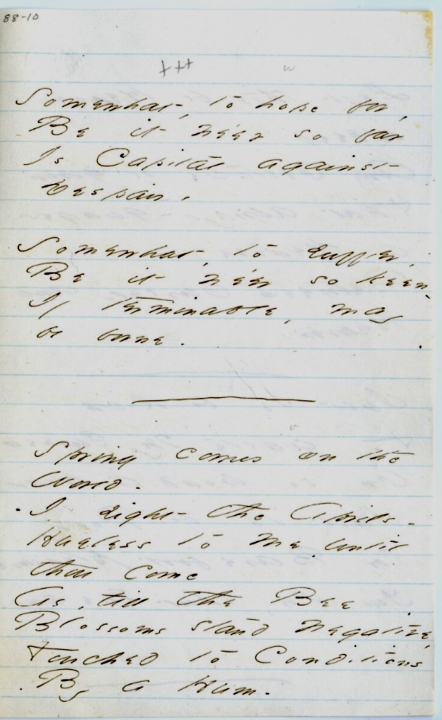 88-10
+++
Somewhat, to hope for,
Be it ne'er so far
Is Capital against
Despair.
Somewhat, to suffer,
Be it ne'er so keen,
If terminable, may
be borne.
Spring comes on the
World.
I sight the Aprils -
Hueless to me until
thou come
As, till the Bee
Blossoms stand negative,
Touched to Conditions
By a Hum.